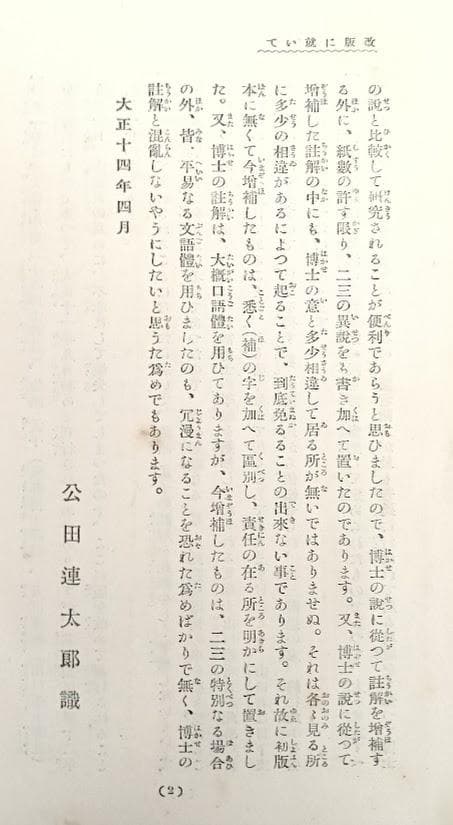 改版に就いて
の説と比較して研究されることが便利であらうと思ひましたので、博士の説に從つて註解を増補す
る外に、紙數の許す限り、二三の異説をも書き加へて置いたのであります。又、博士の説に從つて
増補した註解の中にも、博士の意と多少相違して居る所が無いではありませぬ。それは各〻見る所
に多少の相違があるによつて起ることで、到底免るることの出來ない事であります。それ故に初版
本に無くて今増補したものは、悉く(補)の字を加へて區別し、責任の在る所を明かにして置きまし
た。又、博士の註解は、大概口語體を用ひてありますが、今増補したものは、二三の特別なる場合
の外、皆、平易なる文語體を用ひましたのも、冗漫になることを恐れた爲めばかりで無く、博士の
註解と混亂しないやうにしたいと思うた爲めでもあります。
大正十四年四月
公田連太郎識
(2)